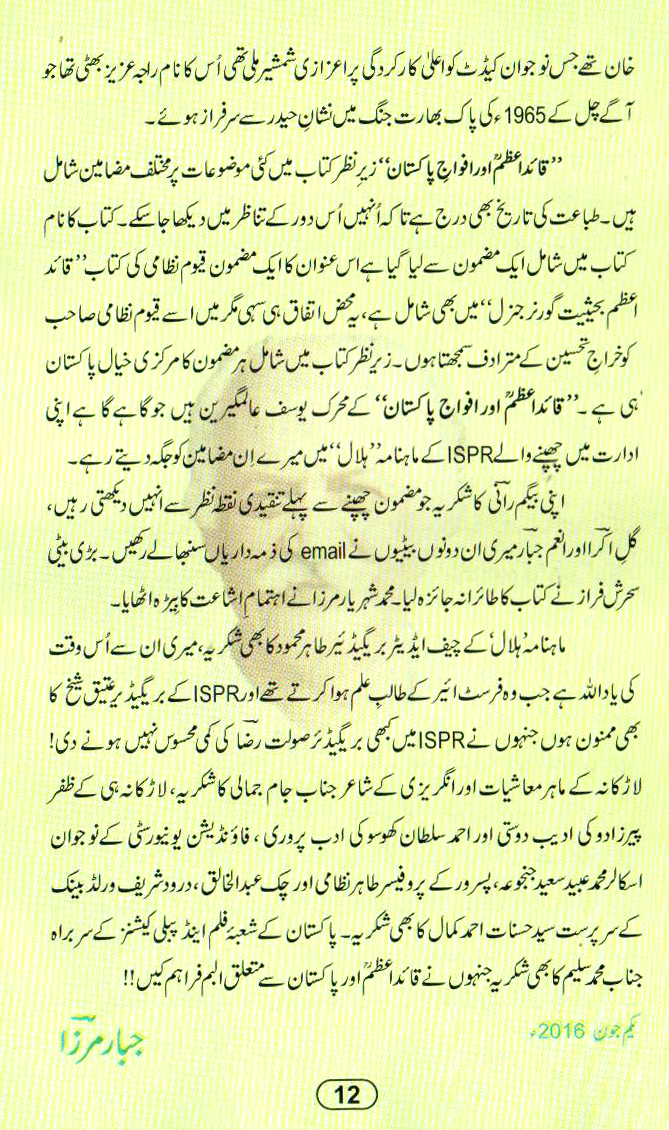 خان تھے جس نوجوان کیڈٹ کو اعلیٰ کارکردگی پر اعزازی شمشیر ملی تھی اُس کا نام راجہ عزیز بھٹی تھا جو
آگے چل کے 1965ء کی پاک بھارت جنگ میں نشانِ حیدر سے سرفراز ہوئے۔
’’قائداعظمؒ اور افواجِ پاکستان‘‘ زیرِ نظر کتاب میں کئی موضوعات پر مختلف مضامین شامل
ہیں۔ طباعت کی تاریخ بھی درج ہے تاکہ اُنہیں اُس دور کے تناظر میں دیکھا جاسکے۔ کتاب کا نام
کتاب میں شامل ایک مضمون سے لیا گیا ہے اس عنوان کا ایک مضمون قیوم نظامی کی کتاب ’’قائد
اعظم بحیثیت گورنر جنرل‘‘ میں بھی شامل ہے، یہ محض اتفاق ہی سہی مگر میں اسے قیوم نظامی صاحب
کو خراجِ تحسین کے مترادف سمجھتا ہوں۔ زیرِ نظر کتاب میں شامل ہر مضمون کا مرکزی خیال پاکستان
ہی ہے۔ ’’قائداعظمؒ اور افواج پاکستان‘‘ کے محرک یوسف عالمگیرین ہیں جو گاہے گاہے اپنی
ادارت میں چھپنے والے ISPR کے ماہنامہ ’’ہلال‘‘ میں میرے اِن مضامین کو جگہ دیتے رہے۔
اپنی بیگم رانی کا شکریہ جو مضمون چھپنے سے پہلے تنقیدی نقطۂ نظر سے انہیں دیکھتی رہیں،
گلِ اکرا اور انعم جبار میری ان دونوں بیٹیوں نے email کی ذمہ داریاں سنبھالے رکھیں۔ بڑی بیٹی
سحرش فراز نے کتاب کا طائرانہ جائزہ لیا۔ محمد شہریار مرزا نے اہتمامِ اشاعت کا بیڑہ اٹھایا۔
ماہنامہ ’ہلال‘ کے چیف ایڈیٹر بریگیڈئیر طاہر محمود کا بھی شکریہ، میری ان سے اُس وقت
کی یاد اللہ ہے جب وہ فرسٹ ائیر کے طالبِ علم ہوا کرتے تھے اور ISPR کے بریگیڈیر عتیق شیخ کا
بھی ممنون ہوں جنہوں نے ISPR میں کبھی بریگیڈئر صولت رضا کی کمی محسوس نہیں ہونے دی!
لاڑکانہ کے ماہر معاشیات اور انگریزی کے شاعر جناب جام جمالی کا شکریہ، لاڑکانہ ہی کے ظفر
پیرزادو کی ادیب دوستی اور احمد سلطان کھوسو کی ادب پروری، فاؤنڈیشن یونیورسٹی کے نوجوان
اسکالر محمد عبید سعید جنجوعہ، پسرور کے پروفیسر طاہر نظامی اور چک عبدالخالق، درود شریف ورلڈ بینک
کے سرپرست سید حسنات احمد کمال کا بھی شکریہ۔ پاکستان کے شعبۂ فلم اینڈ پبلی کیشنز کے سربراہ
جناب محمد سلیم کا بھی شکریہ جنہوں نے قائداعظمؒ اور پاکستان سے متعلق البم فراہم کیں!!
یکم جون 2016ء
جبار مرزا
12